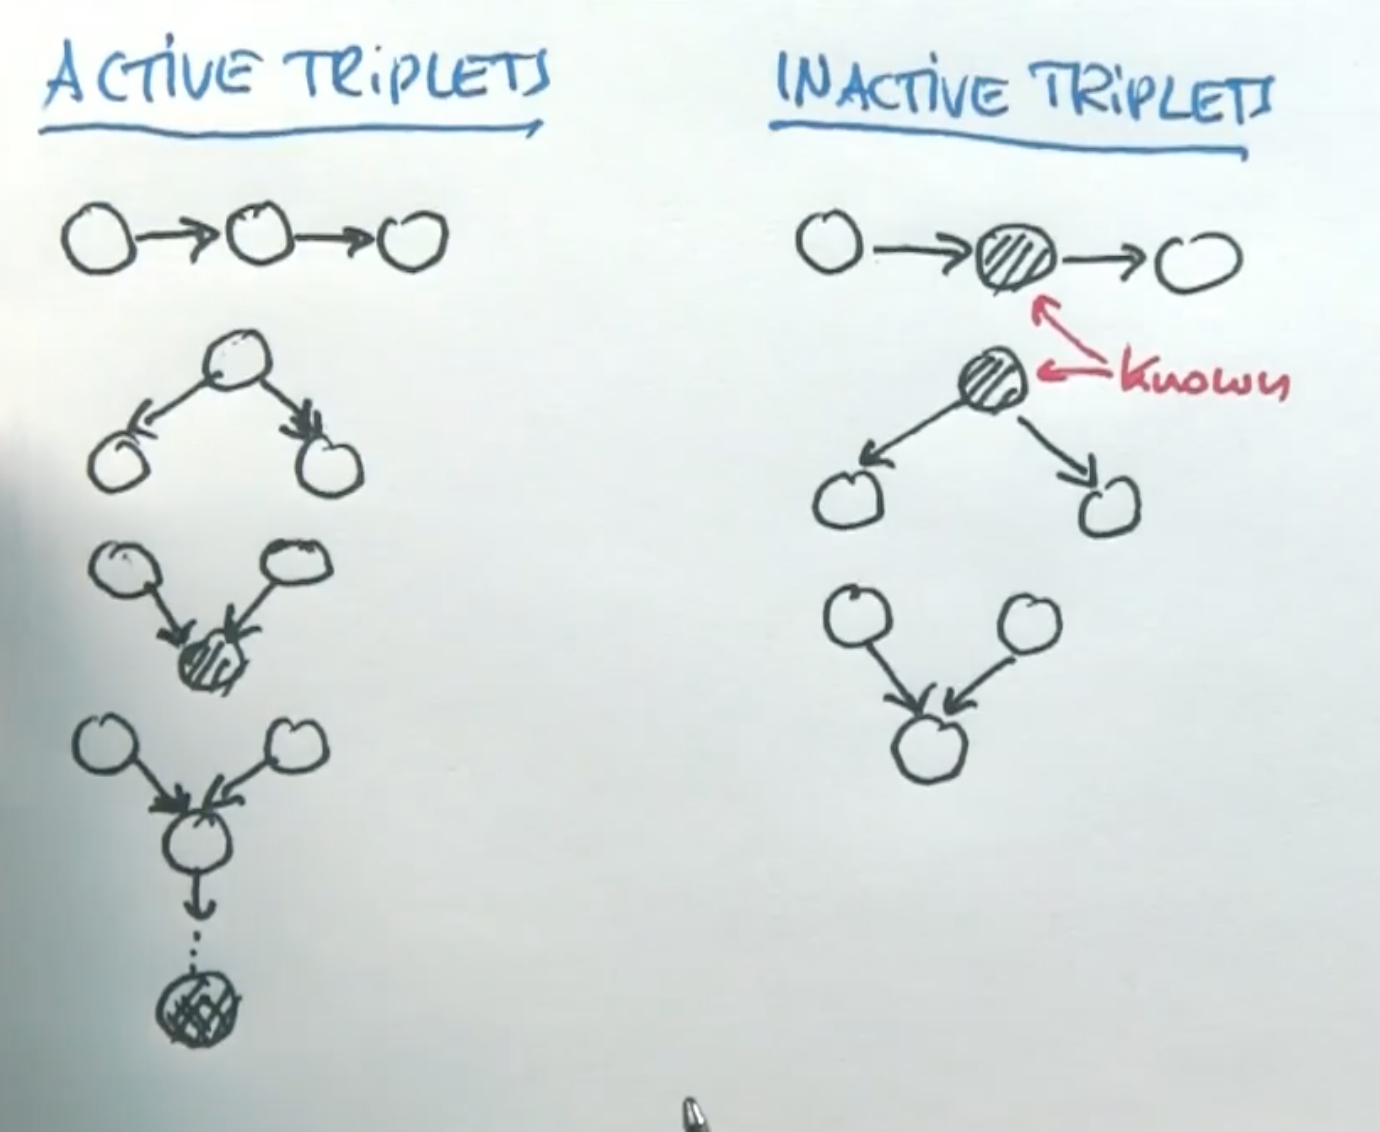 ACTIVE TRIPLETS
INACTIVE TRIPLETS
Known